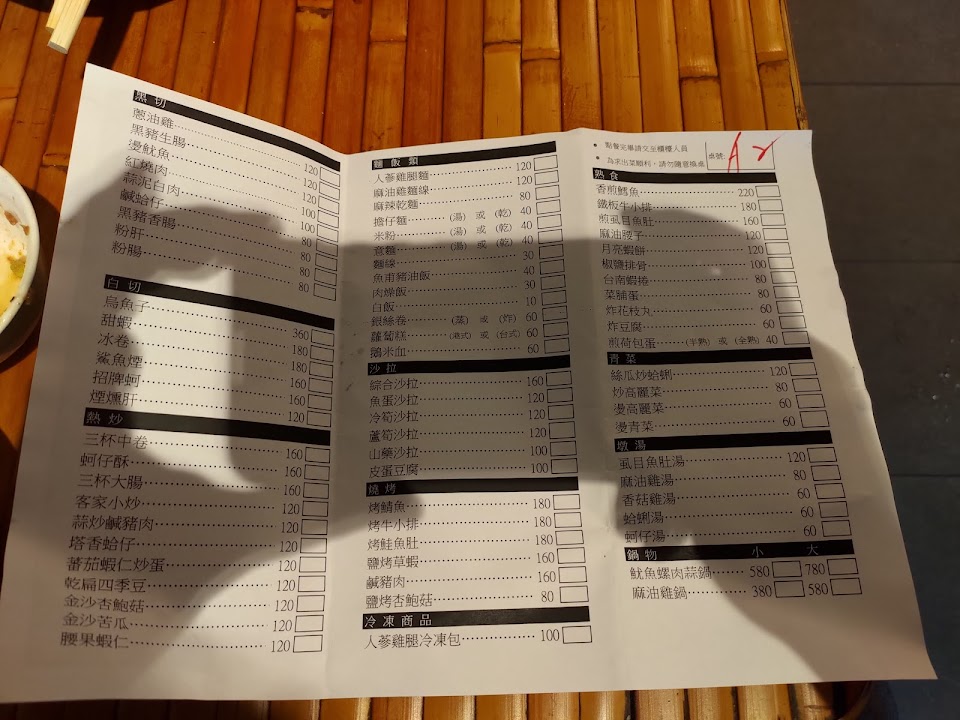 黑切
蔥油雞 120
黑豬生腸 120
燙魷魚 120
紅燒肉 100
蒜泥白肉 100
鹹蛤仔 80
黑豬香腸 80
粉肝 80
粉腸 80
白切
烏魚子 360
甜蝦 180
冰卷 180
鯊魚煙 160
招牌蚵 160
煙燻肝 120
熱炒
三杯中卷 160
蚵仔酥 160
三杯大腸 160
客家小炒 120
蒜炒鹹豬肉 120
塔香蛤仔 120
蕃茄蝦仁炒蛋 120
乾扁四季豆 120
金沙杏鮑菇 120
金沙苦瓜 120
腰果蝦仁 120
麵飯類
人蔘雞腿麵 120
麻油雞麵線 120
麻辣乾麵 80
擔仔麵 (湯) 或 (乾) 40
米粉 (湯) 或 (乾) 40
意麵 (湯) 或 (乾) 40
麵線 30
魚甫豬油飯 40
肉燥飯 30
白飯 10
銀絲卷 (蒸) 或 (炸) 60
蘿蔔糕 (港式) 或 (台式) 60
鵝米血 60
沙拉
綜合沙拉 160
魚蛋沙拉 120
冷筍沙拉 120
蘆筍沙拉 120
山藥沙拉 100
皮蛋豆腐 100
燒烤
烤鯖魚 180
烤牛小排 180
烤鮭魚肚 180
鹽烤草蝦 160
鹹豬肉 160
鹽烤杏鮑菇 80
冷凍商品
人蔘雞腿冷凍包 100
• 點餐完畢請交至櫃檯人員
• 為求出菜順利,請勿隨意換桌
桌號: A2
熟食
香煎鱈魚 220
鐵板牛小排 180
煎虱目魚肚 160
麻油腰子 120
月亮蝦餅 120
椒鹽排骨 100
台南蝦捲 80
菜脯蛋 80
炸花枝丸 60
炸豆腐 60
煎荷包蛋 (半熟) 或 (全熟) 40
青菜
絲瓜炒蛤蜊 120
炒高麗菜 80
燙高麗菜 60
燙青菜 60
燉湯
虱目魚肚湯 120
麻油雞湯 80
香菇雞湯 60
蛤蜊湯 60
蚵仔湯 60
鍋物 小 大
魷魚螺肉蒜鍋 580 780
麻油雞鍋 380 580